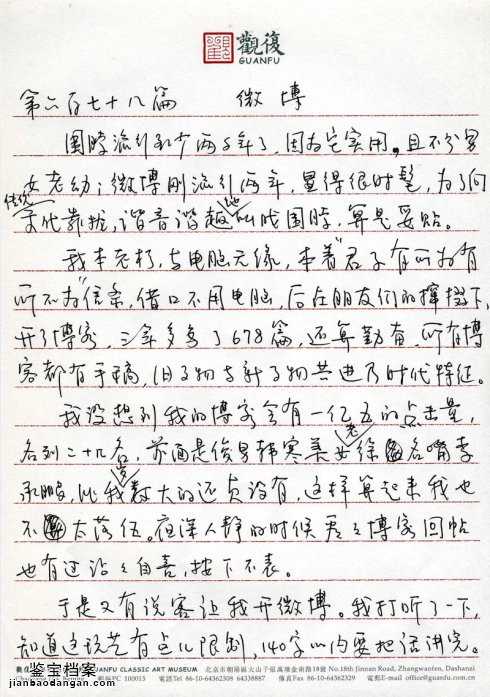 觀復
GUANFU
第六百七十八篇 微博
围脖流行至少两千年了,因为它实用,且不分男
女老幼;微博刚流行两年,显得很时髦,为了向
传统文化靠拢,谐音谐趣地叫成围脖,算是妥贴。
我本老朽,与电脑无缘,本着"君子有所为有
所不为"信条,借口不用电脑,后在朋友们的撺掇下,
开了博客,二年多写了678篇,还算勤奋,所有博
客都有手稿,旧事物与新事物共进乃时代特征。
我没想到我的博客会有一亿五的点击量,
名列二十几名,前面是俊男韩寒美女老徐名嘴李
承鹏,比我岁数大的还真没有,这样算起来我也
不算太落伍。夜深人静的时候看看博客回帖
也有过沾沾自喜,按下不表。
于是又有说客让我开微博。我打听了一下,
知道这玩艺有点儿限制,140字以内要把话讲完。
GUANFU CLASSIC ART MUSEUM 北京市朝陽區大山子張萬墳金南路18號 No.18th Jinnan Road, Zhangwanfen, Dashanzi
100015 電話Tel 86-10-64362308 64338887 傳真Fax 86-10-64362329 電郵E-mail office@guanfu.cn
鉴宝档案
jianbaodangan.com